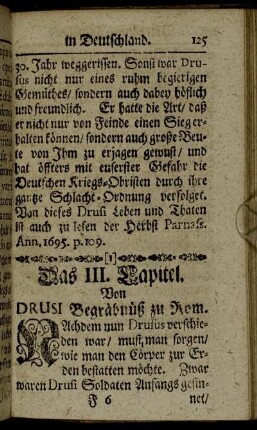 in Deutschland. 125
30. Jahr weggerissen. Sonst war Dru-
sus nicht nur eines ruhm begierigen
Gemüthes/ sondern auch dabey höflich
und freundlich. Er hatte die Art/ daß
er nicht nur von Feinde einen Sieg er-
halten können/ sondern auch große Beu-
te von Ihm zu erjagen gewust/ und
hat öffters mit euserster Gefahr die
Deutschen Kriegs-Obristen durch ihre
gantze Schlacht-Ordnung verfolget.
Von dieses Drusi Leben und Thaten
ist auch zu lesen der Herbst Parnass.
Ann. 1695. p. 109.
Das III. Capitel.
Von
DRUSI Begräbnüß zu Rom.
NAchdem nun Drusus verschie-
den war/ must man sorgen/
wie man den Cörper zur Er-
den bestatten möchte. Zwar
waren Drusi Soldaten Anfangs gesin-
F 6 net/